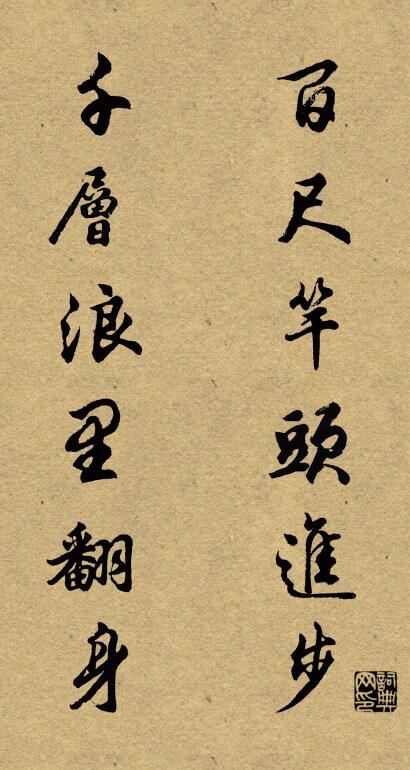 百尺竿頭進步
千層浪里翻身
詞典
网印